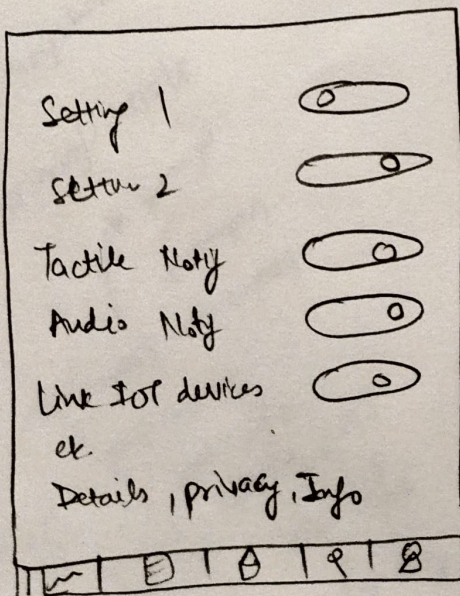 Setting 1
Setting 2
Tactile Notif
Audio Notif
Link IOT devices
etc.
Details, privacy, Info